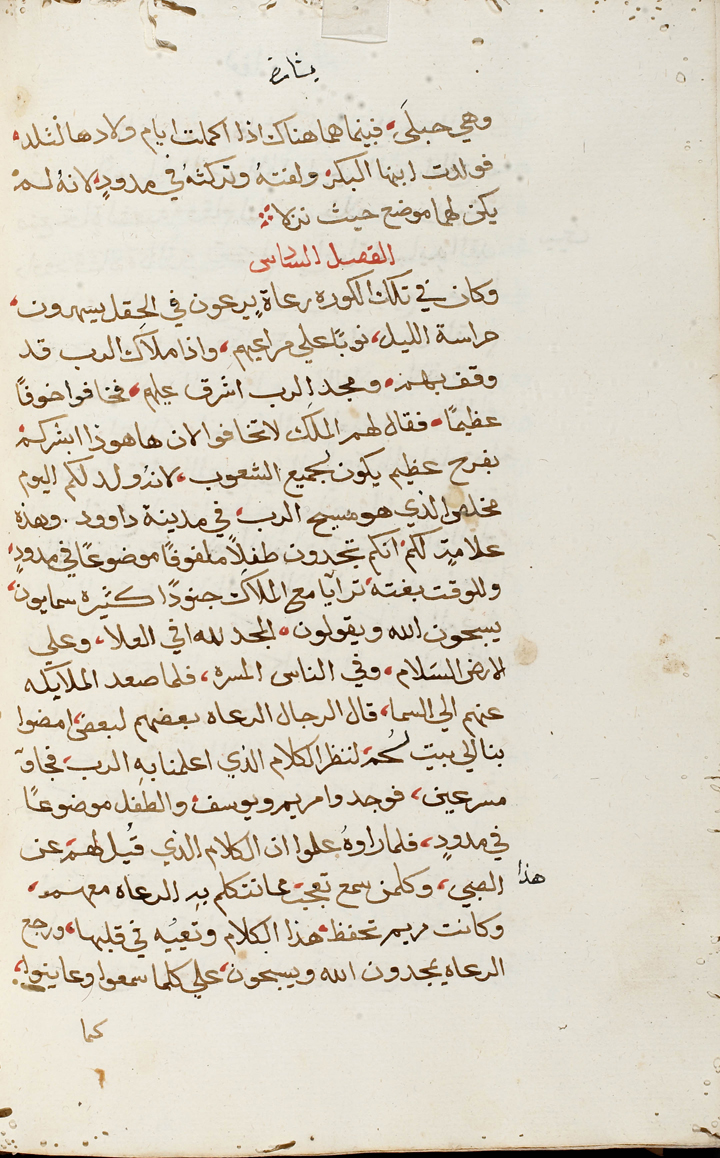 بشارة
وهي حبلَي، فبينما هما هناك اذا اكملت ايام ولادها لتلد،
فولدت ابنها البكر، ولفتهُ وتركتهُ في مدودٍ، لانهُ لم
يكن لهما موضع حيث نزلا
الفصل السادس
وكان في تلك الكوره رعاة يرعون في الحقل يسهرون،
حراسة الليل، نوبًا علي مراعيهم، واذا ملاك الرب قد
وقف بهم، ومجد الرب اشرق عليهم، فخافوا خوفًا
عظيمًا، فقال لهم الملك لا تخافوا لان هاهوذا ابشركم
بفرح عظيم يكون لجميع الشعوب، لانهُ ولد لكم اليوم
مخلص الذي هو مسيح الرب، في مدينة داوود. وهذه
علامةٍ لكم، انكم تجدون طفلاً ملفوفًا موضوعًا في مدودٍ،
وللوقت بغتة، ترآيا مع الملاك جنودًا كثيرة سمايون،
يسبحون الله ويقولون، المجد لله في العلا، وعلي
الارض السَلام، وفي الناس المسرة، فلما صعد الملايكه
عنهم الي السما، قال الرجال الرعاه بعضهم لبعض، امضوا
بنا الي بيت لحُم، لننظر الكلام الذي اعلمنا بهِ الرب، فجاوَ
مسرعين، فوجدوا مريم ويوسف، والطفل موضوعًا
في مدودٍ، فلما راوهُ علموا ان الكلام الذي قُيل لهم، عن
الصبي، وكلمن سمع تعجبَ، مما تتكلم بهِ الرعاه معهم،
هذا
وكانت مريم تحفظ، هذا الكلام وتعيُه في قلبها، ورجع
الرعاه يمجدون الله ويسبحون، علي كلما سمعوا وعاينوا،
كما